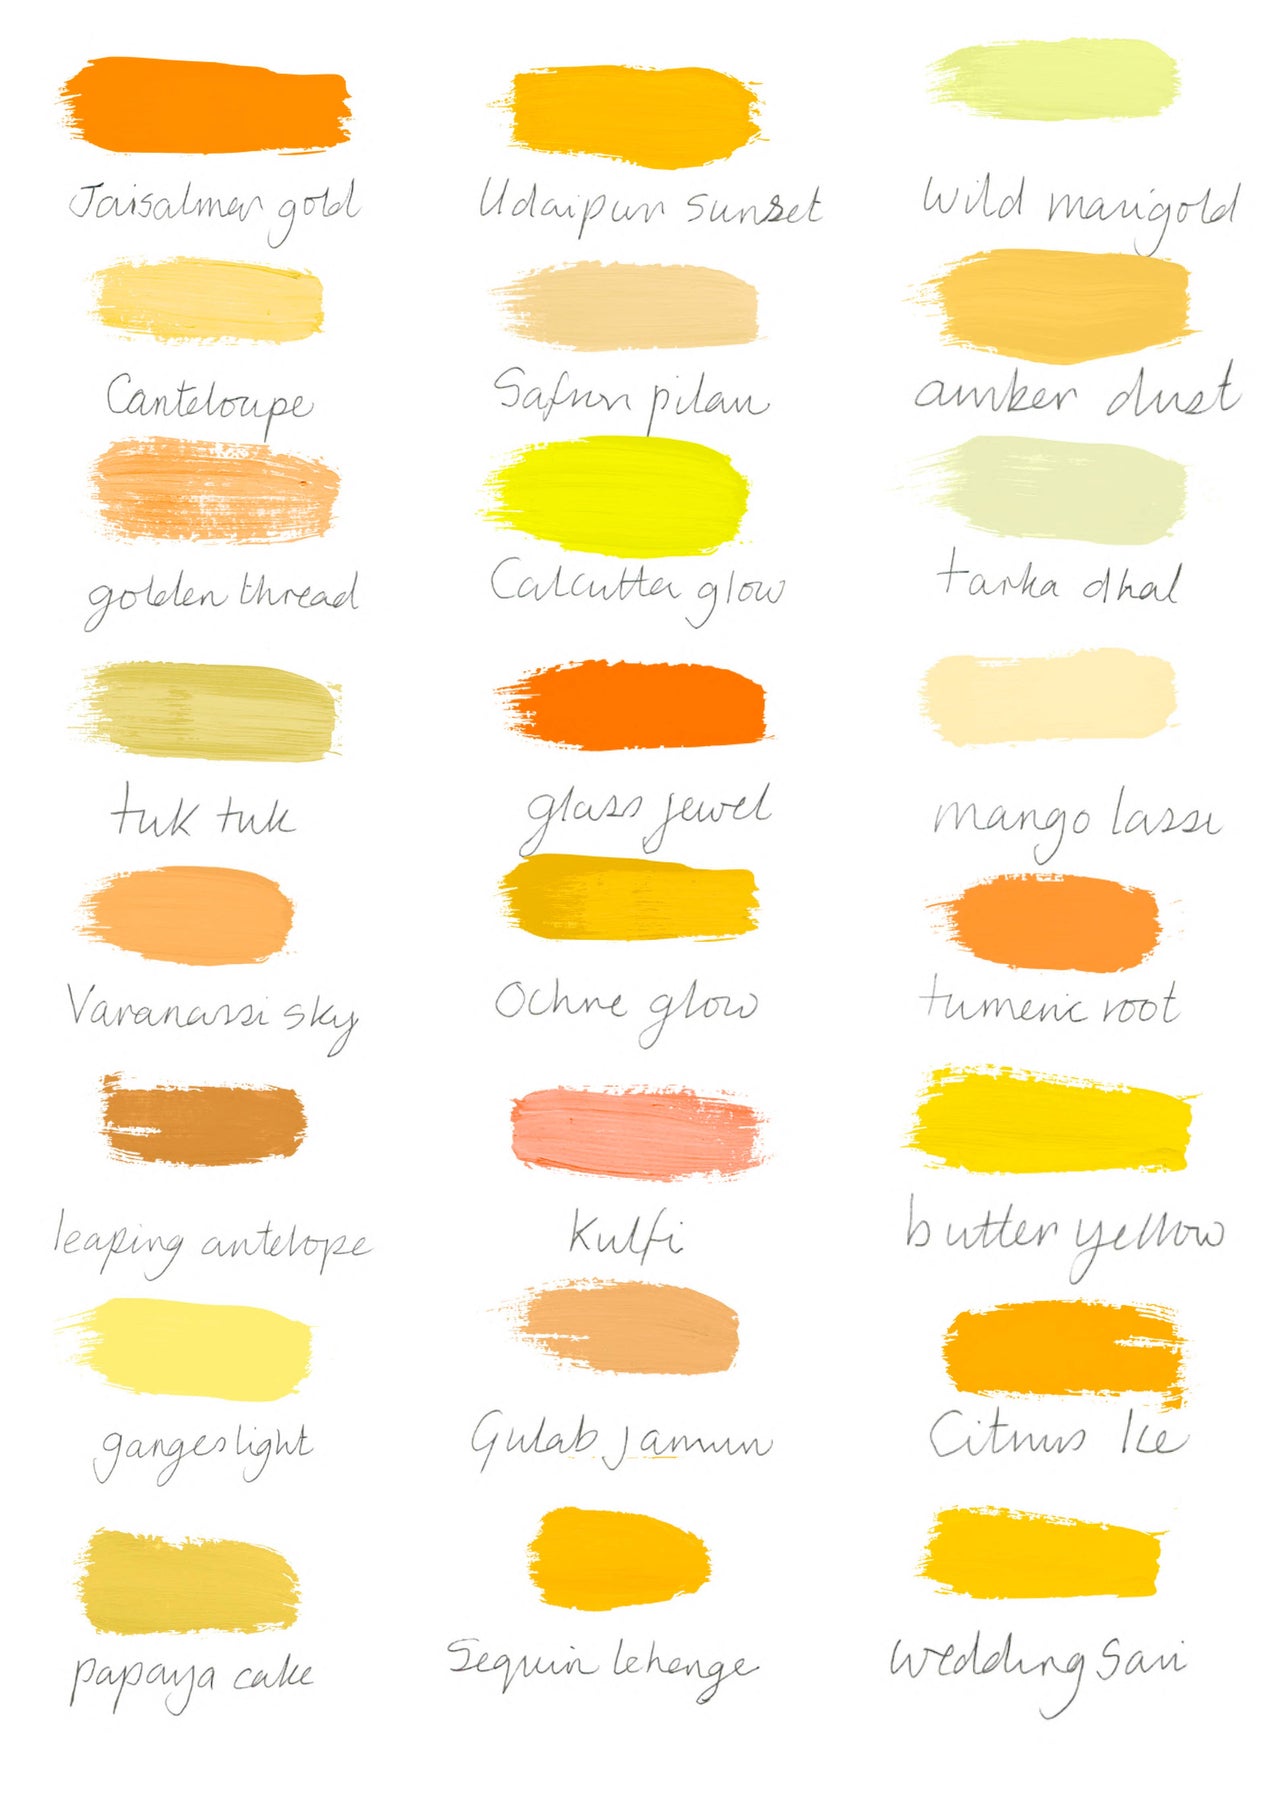 Jaisalmer gold
Udaipur sunset
wild marigold
Canteloupe
Safron pilau
amber dust
golden thread
Calcutta glow
tarka dhal
tuk tuk
glass jewel
mango lassi
Varanassi sky
Ochre glow
tumeric root
leaping antelope
Kulfi
butter yellow
ganges light
Gulab jamun
Citrus Ice
papaya cake
Sequin lehenge
wedding Sari